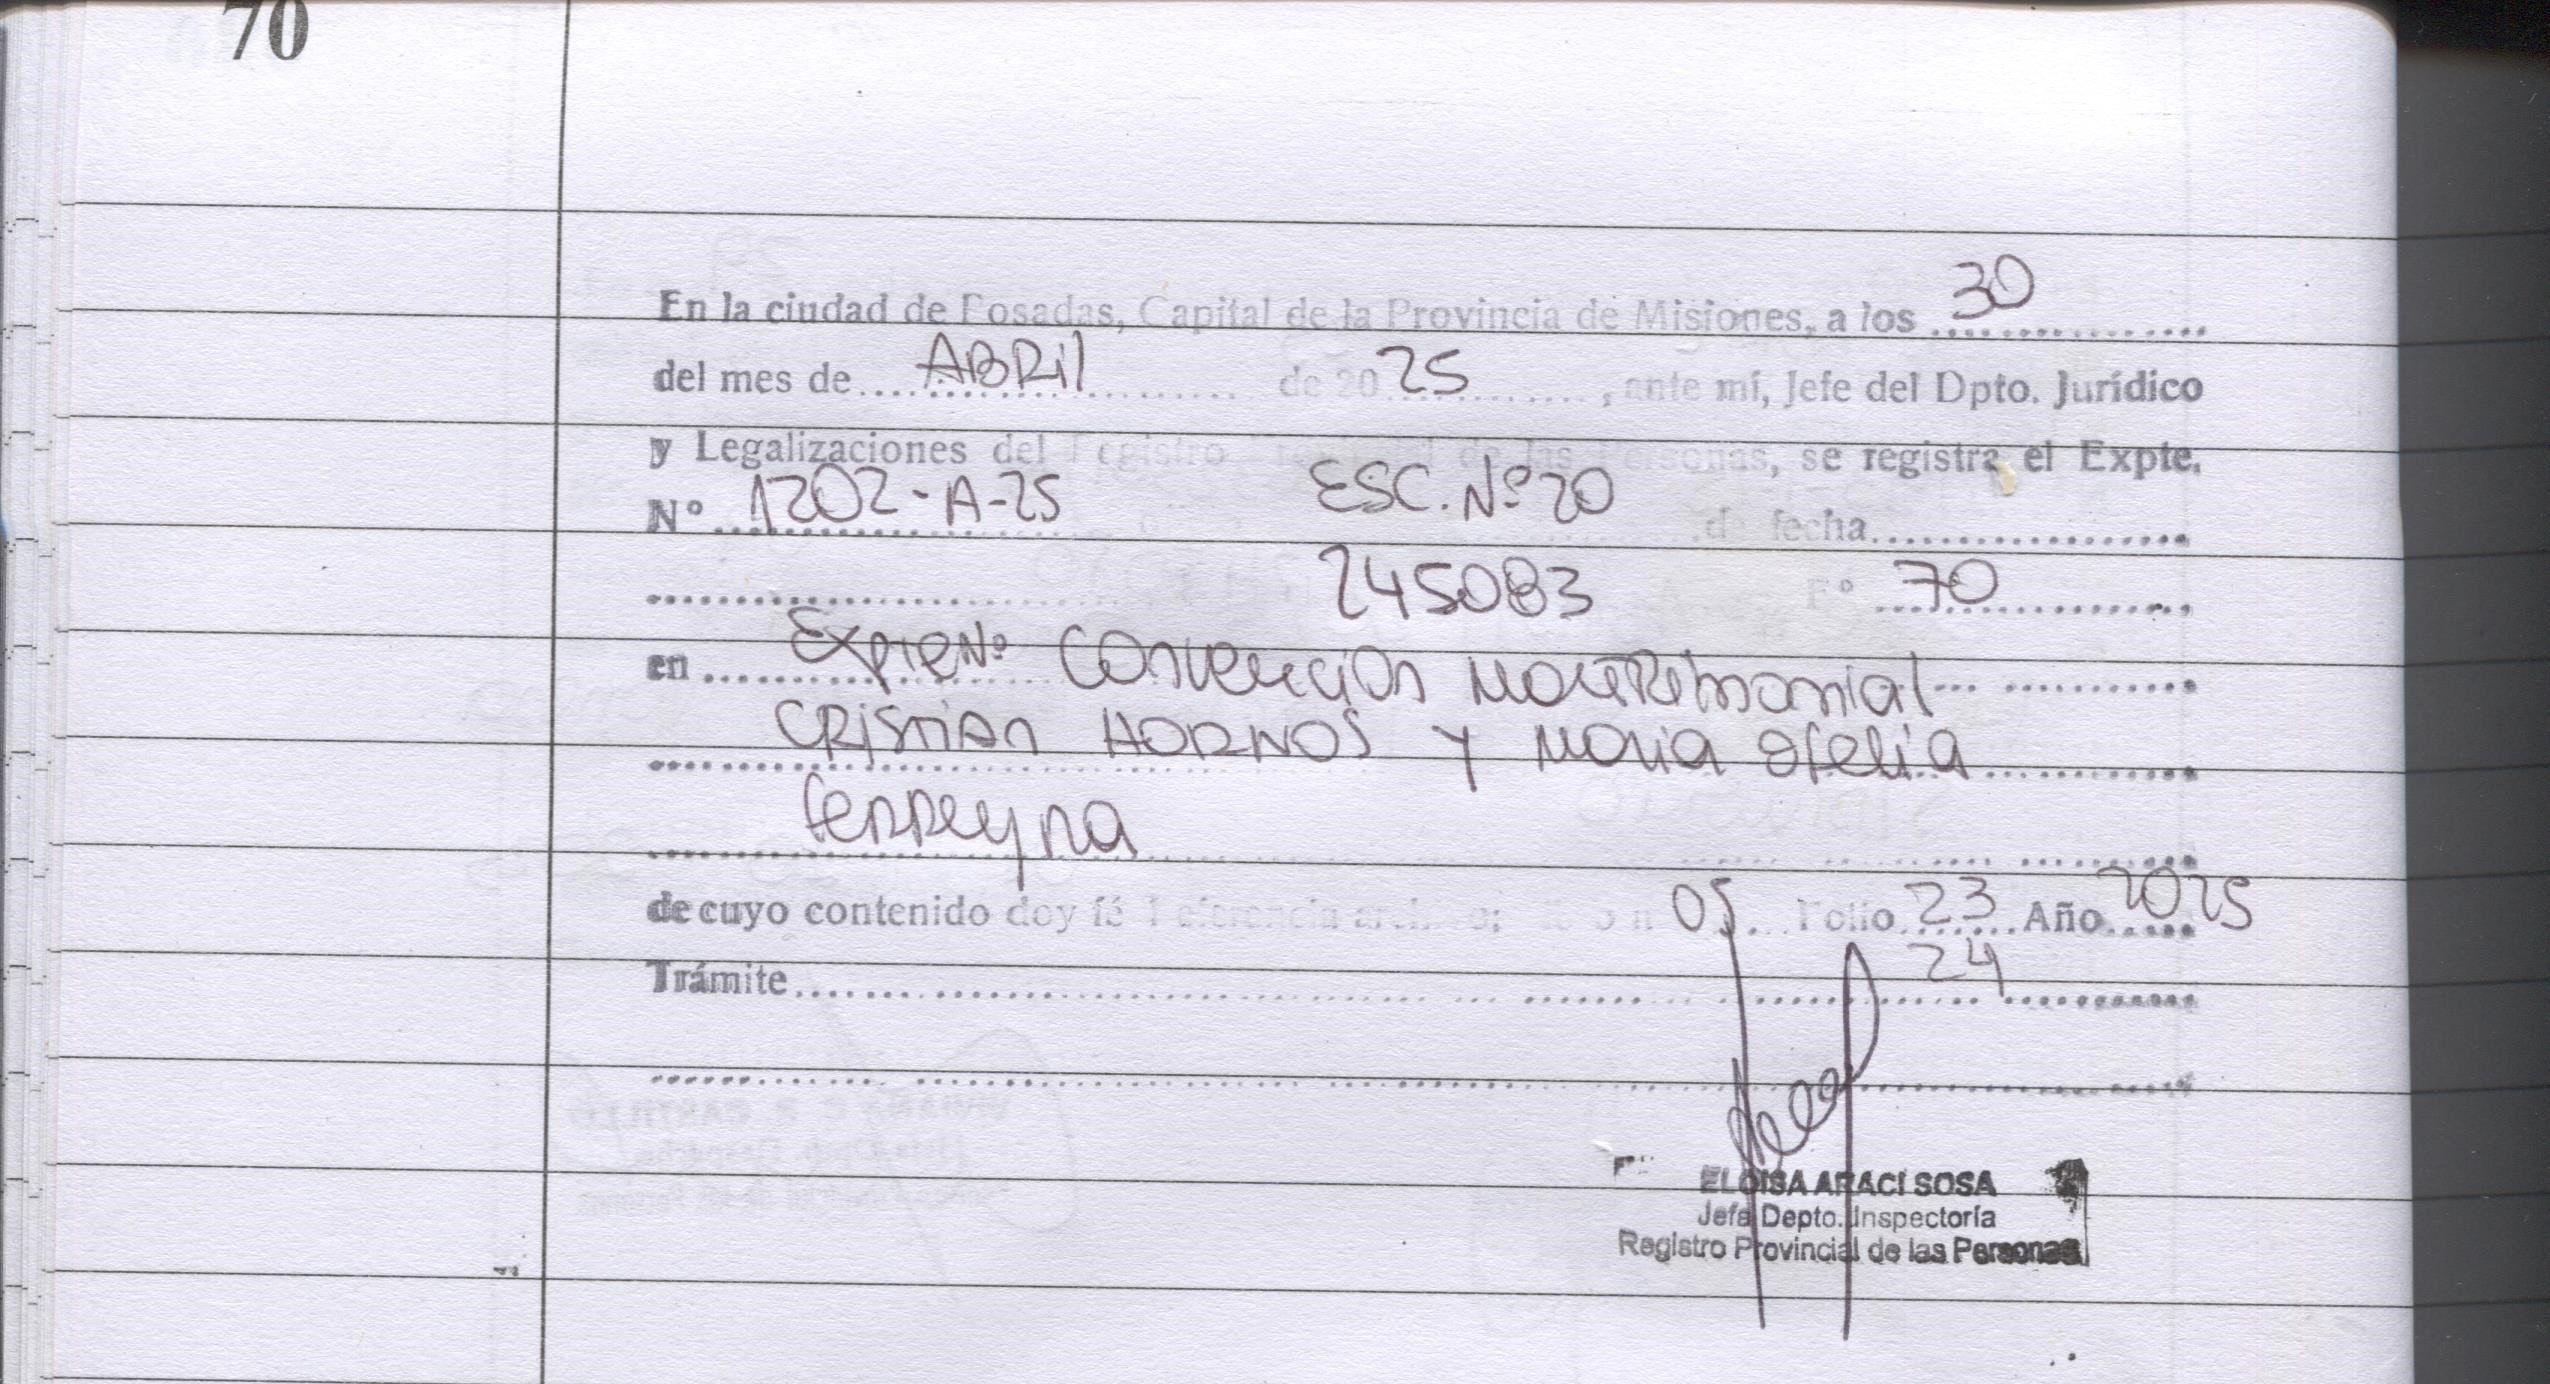 70
En la ciudad de Posadas, Capital de la Provincia de Misiones, a los 30
del mes de ABRil de 20 25, ante mí, Jefe del Dpto. Jurídico
y Legalizaciones del Registro Provincial de las Personas, se registra el Expte.
Nº 1202-A-25 ESC. Nº 20 de fecha
245083 Fº 70
en Expte Nº Convención Matrimonial
CRistian HORNOS y Maria Ofelia
ferreyra
de cuyo contenido doy fé Referencia archivo: 05 Folio 23 Año 2025
24
Trámite
ELOISA ARACI SOSA
Jefa Depto. Inspectoría
Registro Provincial de las Personas